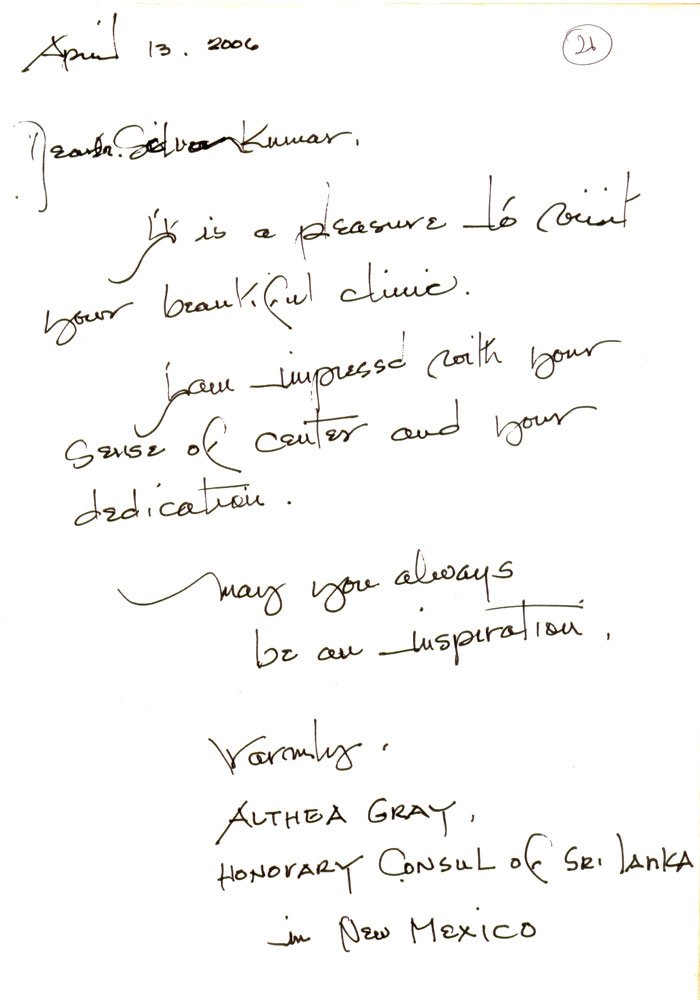 April 13. 2006
21
Dear Dr. Selva Kumar,
It is a pleasure to visit
your beautiful clinic.
I am impressd with your
sense of center and your
dedication.
May you always
be an inspiration,
Warmly,
ALTHEA GRAY,
HONORARY CONSUL of SRI lANKA
in NEW MEXICO